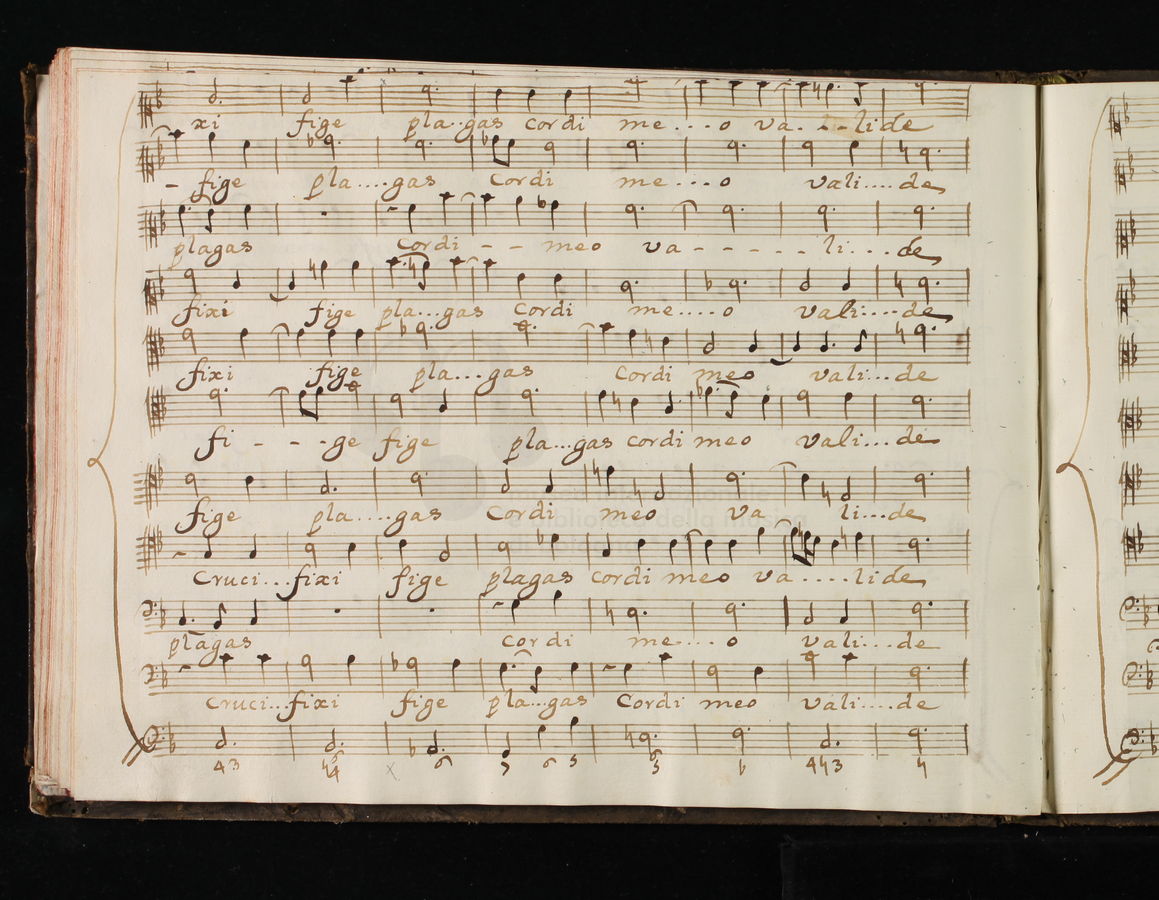 xi fige pla..gas cordi me....o va.--lide
- fige pla....gas cordi me....o vali....de
plagas cordi - - meo va - - - - - li....de
fixi fige pla...gas cordi me.....o vali....de
fixi fige pla...gas cordi meo vali...de
fi - - -ge fige pla...gas cordi meo vali...de
fige pla....gas cordi meo va li...de
cruci...fixi fige plagas cordi meo va.....lide
plagas cordi me.....o vali....de
cruci...fixi fige pla...gas cordi meo vali....de